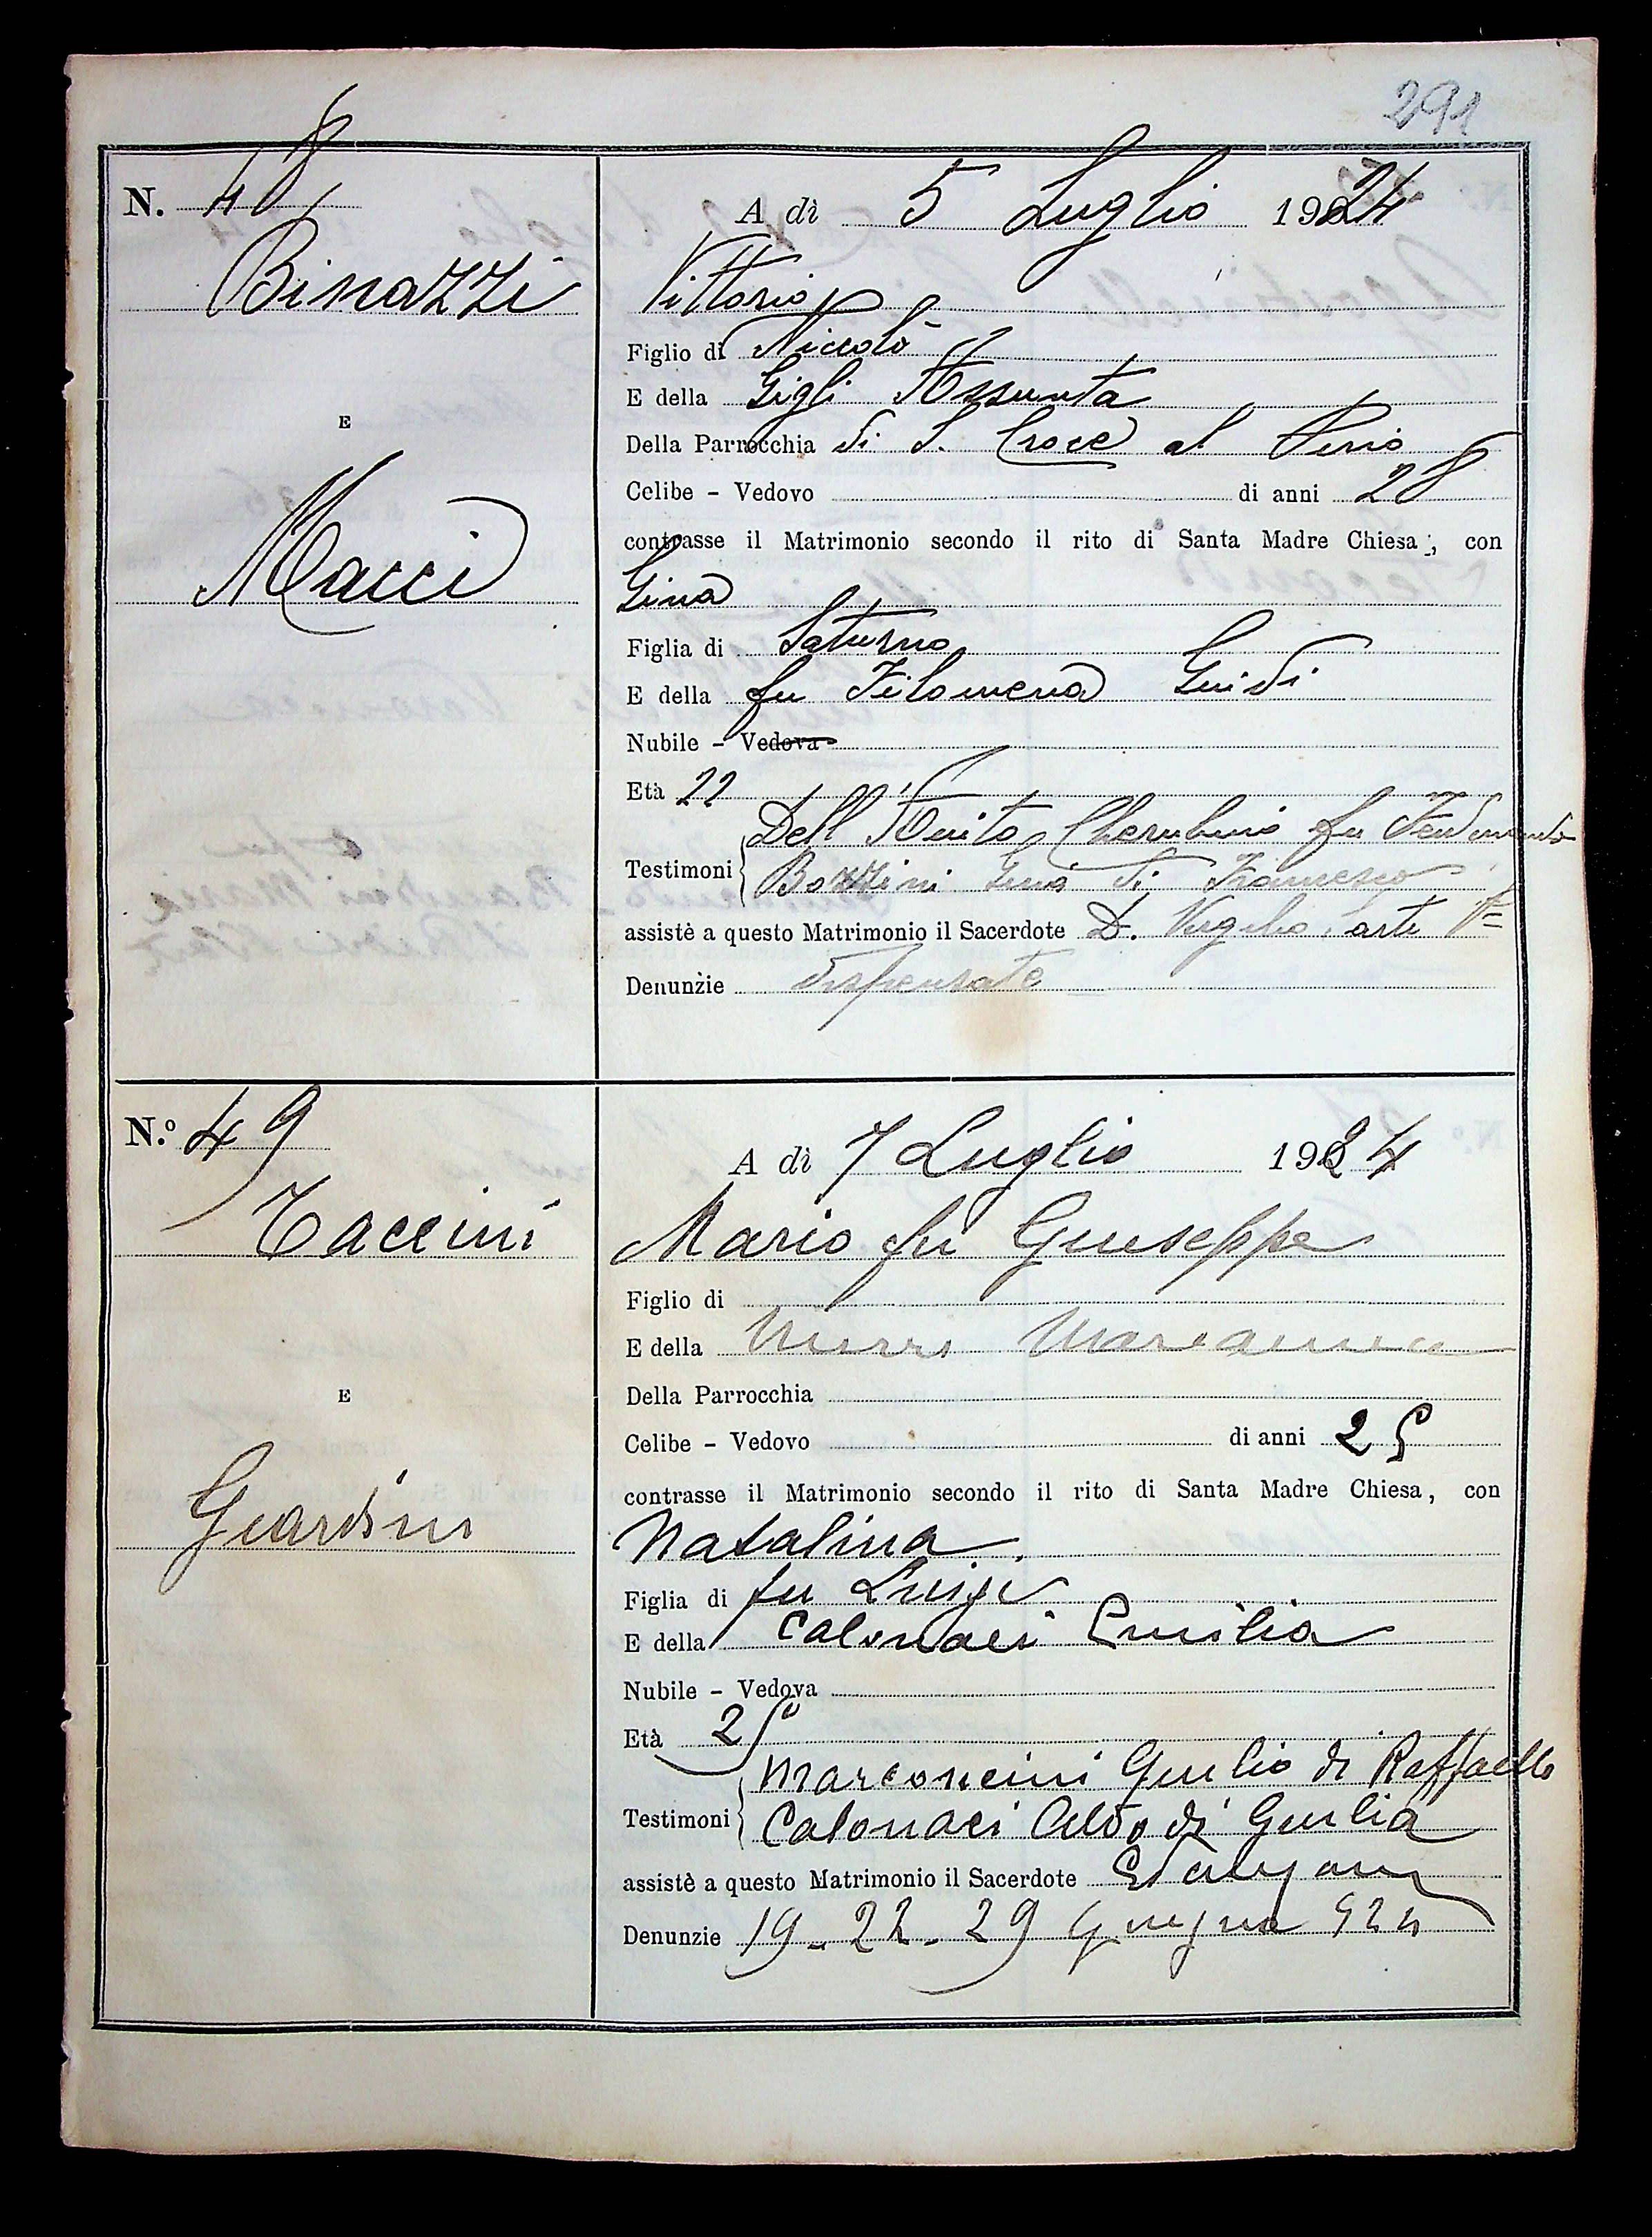 291
N. 48
Binazzi
E
Macci
A dì 5 Luglio 1924
Vittorio
Figlio di Niccolò
E della Gigli Assunta
Della Parrocchia di S. Croce al Pino
Celibe - Vedovo di anni 28
contrasse il Matrimonio secondo il rito di Santa Madre Chiesa, con
Gina
Figlia di Saturno
E della fu Filomena Guidi
Nubile - Vedova
Età 22
Testimoni Dell'Amico Cherubino fu Ferdinando
Bozzini Gina di Francesco
assistè a questo Matrimonio il Sacerdote D. Virgilio
Denunzie dispensate
N.º 49
Taccini
E
Giardini
A dì 7 Luglio 1924
Mario fu Giuseppe
Figlio di
E della Nerri Marianna
Della Parrocchia
Celibe - Vedovo di anni 25
contrasse il Matrimonio secondo il rito di Santa Madre Chiesa, con
Natalina
Figlia di fu Luigi
E della Calonaci Emilia
Nubile - Vedova
Età 25
Testimoni Marconcini Giulio di Raffaello
Calonaci Aldo di Giulia
assistè a questo Matrimonio il Sacerdote
Denunzie 19 - 22 - 29 Giugno 924